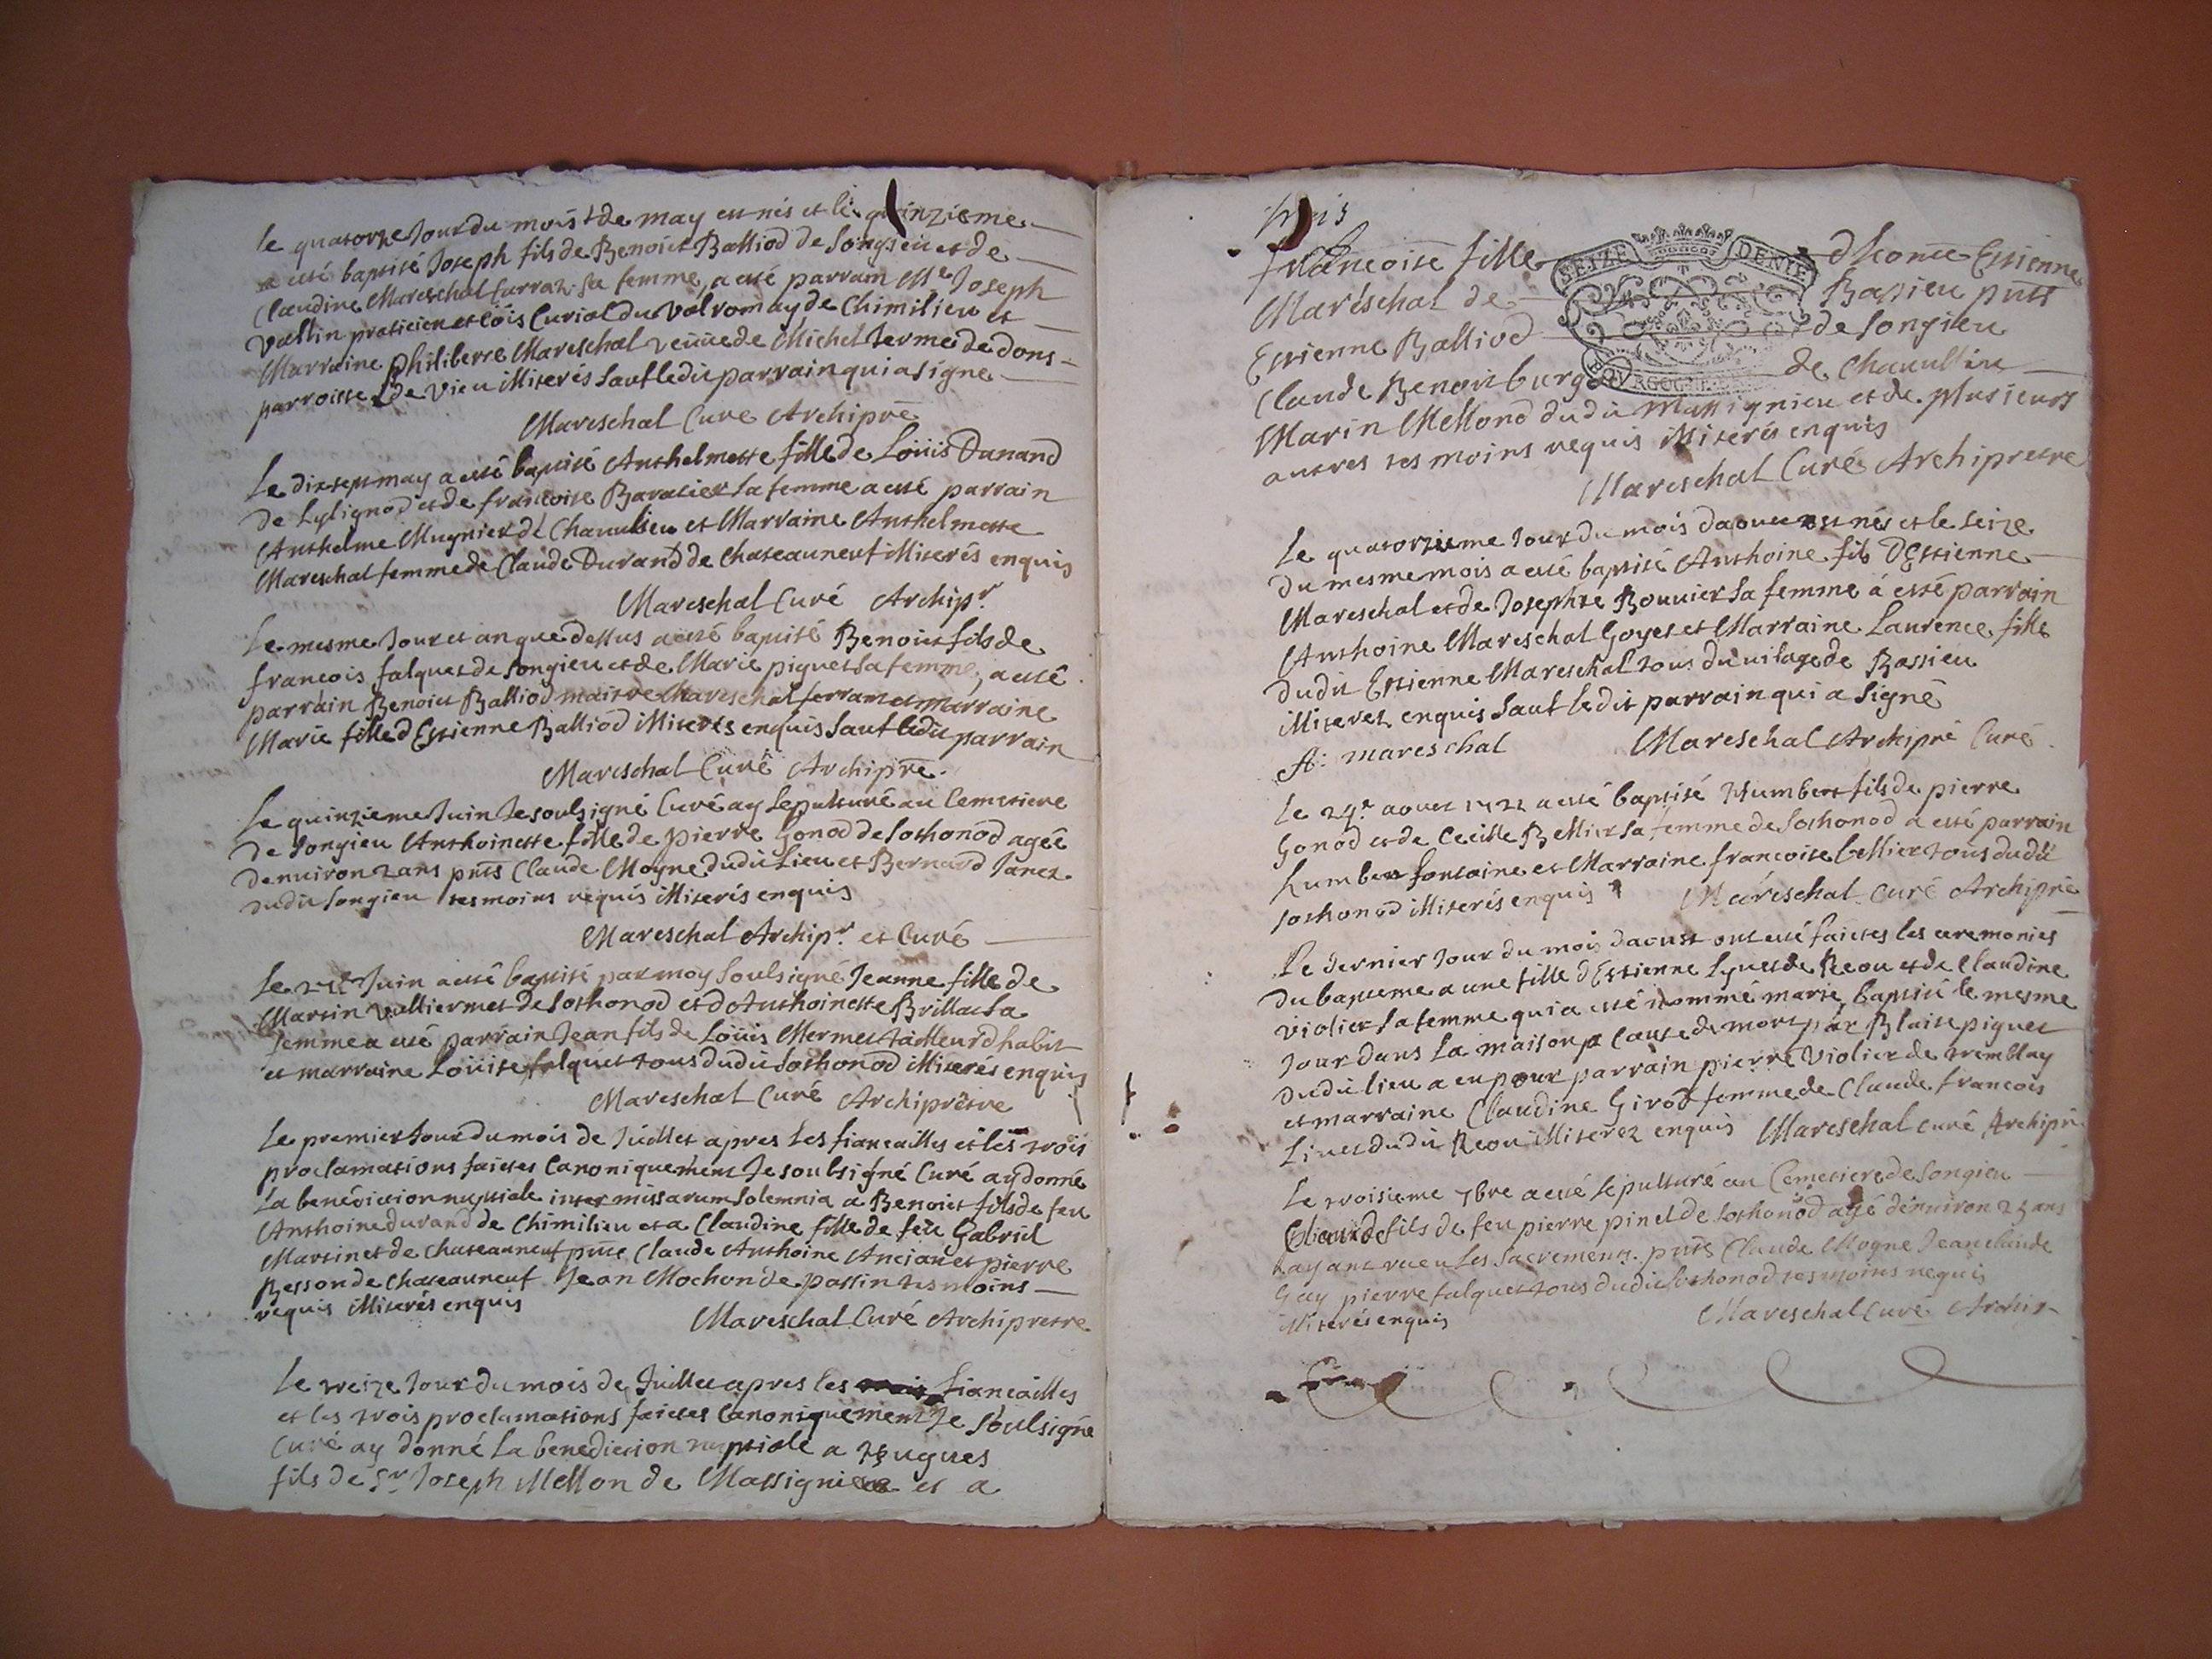 le quatorze Jour du mois de may est nés et le quinzieme
a esté baptisé Joseph fils de Benoist Balliod de Songieu et de
Claudine Mareschal Carraz sa femme, a esté parrain Me Joseph
Vallin praticien et Curial du Valromay de Chimilieu et
Marraine philiberte Mareschal veuue de Michel Jerme de dons
parroisse de Vieu illiterés sauf ledit parrain qui a signe
Mareschal Cure Archipre
Le dix sept may a esté baptisé Anthelmette fille de Loüis Dunand
de Lylignod et de francoise Baratier sa femme a esté parrain
Anthelme Mugnier de Chaualieu et Marraine Anthelmette
Mareschal femme de Claude Durand de Chateauneuf illiterés enquis
Mareschal Curé Archipr.
Le mesme Jour et an que dessus a esté baptisé Benoist fils de
francois falquet de Songieu et de Marie piquet sa femme, a esté
parrain Benoist Balliod maistre Mareschal ferrant et marraine
Marie fille d'Estienne Balliod illiterés enquis sauf ledit parrain
Mareschal Curé Archipre.
Le quinzieme Juin Je soulsigné Curé ay sepulturé au Cemetiere
de Songieu Anthoinette fille de pierre Gonod de Sothonod agée
denuiron 2 ans pnts Claude Moyne dudit Lieu et Bernard Janet
dudit Songieu tesmoins requis illiterés enquis
Mareschal Archipr. et Curé
Le Juin a esté baptisé par moy soulsigné Jeanne fille de
Martin Vulliermet de Sothonod et d'Anthoinette Brillat sa
femme a esté parrain Jean fils de Loüis Mermet tailleur d'habit
et marraine Loüise falquet tous dudit Sothonod illiterés enquis
Mareschal Curé Archiprêtre
Le premier Jour du mois de Juillet apres les fiancailles et les trois
proclamations faictes Canoniquement Je soulsigné Curé ay donné
la benediction nuptiale inter missarum Solemnia a Benoist fils de feu
Anthoine durand de Chimilieu et a Claudine fille de feu Gabriel
Martinet de Chateauneuf pnts Claude Anthoine Ancian et pierre
Besson de Chateauneuf Jean Mochon de passin tesmoins
requis illiterés enquis
Mareschal Curé Archipretre
Le treize Jour du mois de Juillet apres les fiancailles
et les trois proclamations faictes Canoniquement Je soulsigné
Curé ay donné la benediction nuptiale a Hugues
fils de Sr Joseph Mellon de Massignieu et a
trois
francoise fille d'honē Estienne
SEIZE DENIE
Maréschal de Bassieu pnts
Estienne Balliod de Songieu
BOVRGOGNE
Claude Benoist burgod de Chaualieu
Marin Mellond dudit Massignieu et de plusieurs
autres tesmoins requis illiterés enquis
Mareschal Curé Archipretre
Le quatorzieme Jour du mois d'aoust est nés et le seize
du mesme mois a esté baptisé Anthoine fils d'Estienne
Mareschal et de Josephte Bouuier sa femme à esté parrain
Anthoine Mareschal Goyet et Marraine Laurence fille
dudit Estienne Mareschal tous du uilage de Bassieu
illiterez enquis sauf ledit parrain qui a signé
A: mareschal Mareschal Archipré Curé
Le 29e aoust 1722 a esté baptisé Humbert fils de pierre
Gonod et de Cecille Bellier sa femme de Sothonod a esté parrain
humbert fontaine et Marraine francoise bellier tous dudit
Sothonod illiterés enquis Maréschal Curé Archipré
Le dernier Jour du mois d'aoust ont esté faictes les ceremonies
du bapteme a une fille d'Estienne Lyuet de Reou et de Claudine
Violier sa femme qui a esté nommé marie, baptisé le mesme
Jour dans la maison a cause de mort par Blaise piquet
dudit lieu a eu pour parrain pierre Violier de tremblay
et marraine Claudine Girod femme de Claude francois
Liuet dudit Reou illiterez enquis Mareschal curé Archipr
Le troisieme 7bre a esté sepulturé au Cemetiere de Songieu
Claude fils de feu pierre pinet de Sothonod agé denuiron 25 ans
ayant receu les sacrements. pnts Claude Moyne Jean claude
Gay pierre falquet tous dudit Sothonod tesmoins requis
illiterés enquis Mareschal Curé Archip